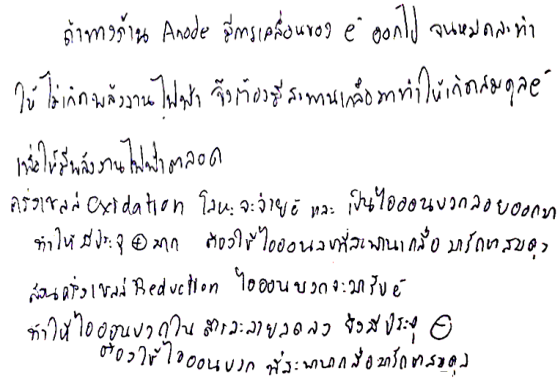 ถ้าทางด้าน Anode มีการเคลื่อนของ e⁻ ออกไป จนหมดจะทำ
ให้ ไม่เกิดพลังงานไฟฟ้า จึงต้องมีสะพานเกลือมาทำให้เกิดสมดุลe⁻
เพื่อให้มีพลังงานไฟฟ้าตลอด
ครึ่งเซลล์ Oxidation โลหะจะจ่ายe⁻ และ เป็นไอออนบวกลอยออกมา
ทำให้ มีประจุ ⊕ มาก ต้องใช้ไอออนลบที่สะพานเกลือ มารักษาสมดุล
ส่วนครึ่งเซลล์ Reduction ไอออนบวกจะมารับe⁻
ทำให้ไอออนบวกใน สารละลายลดลง จึงมีประจุ ⊖
ต้องใช้ไอออนบวก ที่สะพานเกลือมารักษาสมดุล